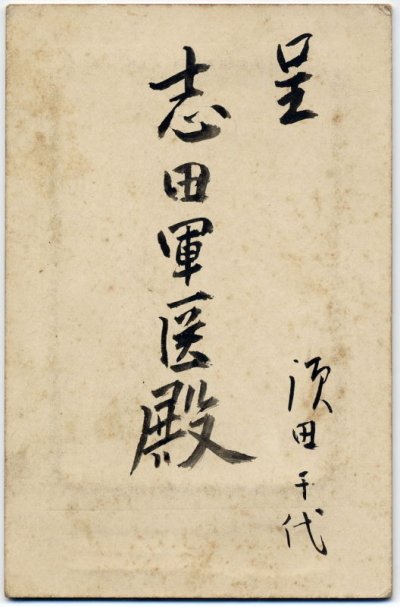 呈
須田千代
志田軍医殿